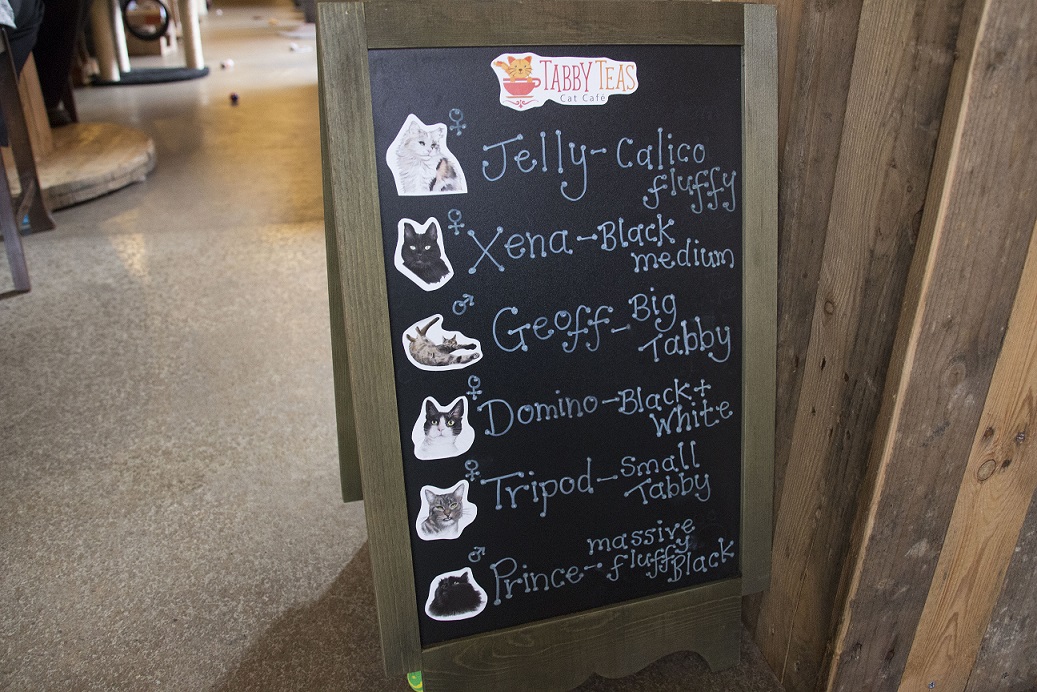 TABBY TEAS
Cat Café
♀ Jelly - Calico
fluffy
♀ Xena - Black
medium
♂ Geoff - Big
Tabby
♀ Domino - Black +
White
♀ Tripod - Small
Tabby
♂ Prince - massive
fluffy
Black